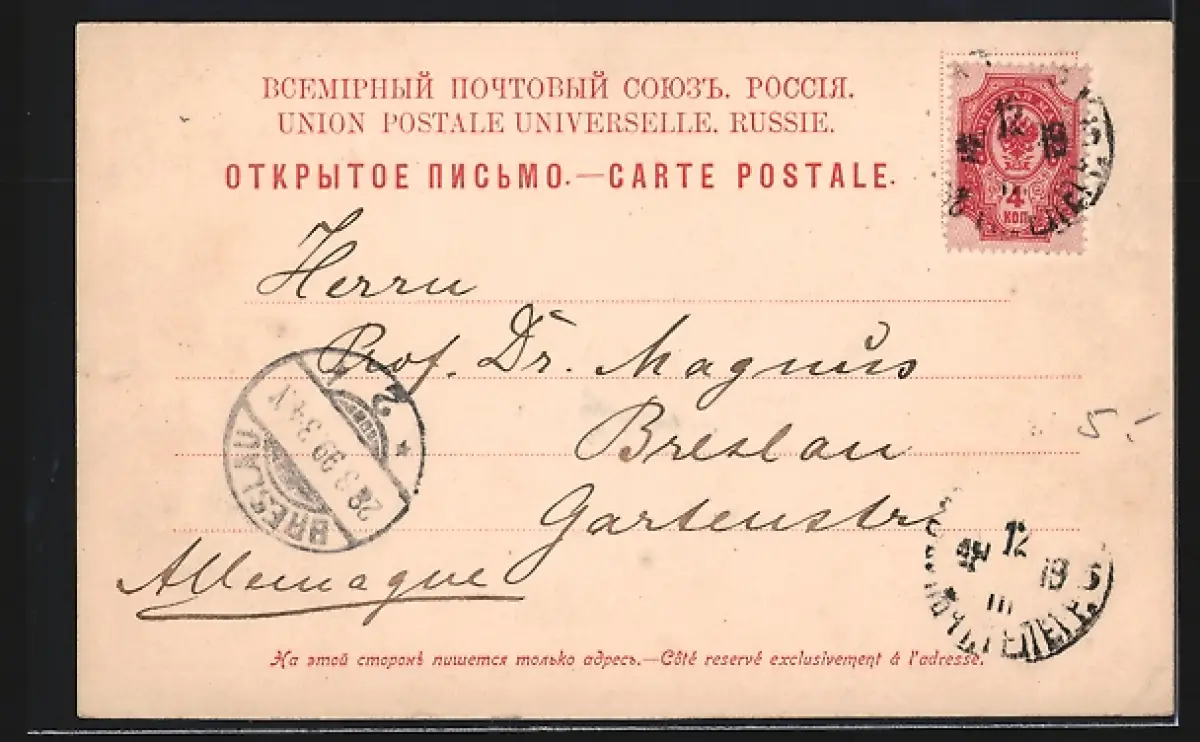 ВСЕМІРНЫЙ ПОЧТОВЫЙ СОЮЗЪ. РОССІЯ.
UNION POSTALE UNIVERSELLE. RUSSIE.
ОТКРЫТОЕ ПИСЬМО.—CARTE POSTALE.
12
4
КОП
Herrn
Prof. Dr. Magnus
Breslau
Gartenstr.
Allemague
BRESLAU
2
5.-
12
III
На этой сторонѣ пишется только адресъ.—Côté reservé exclusivement á l'adresse.